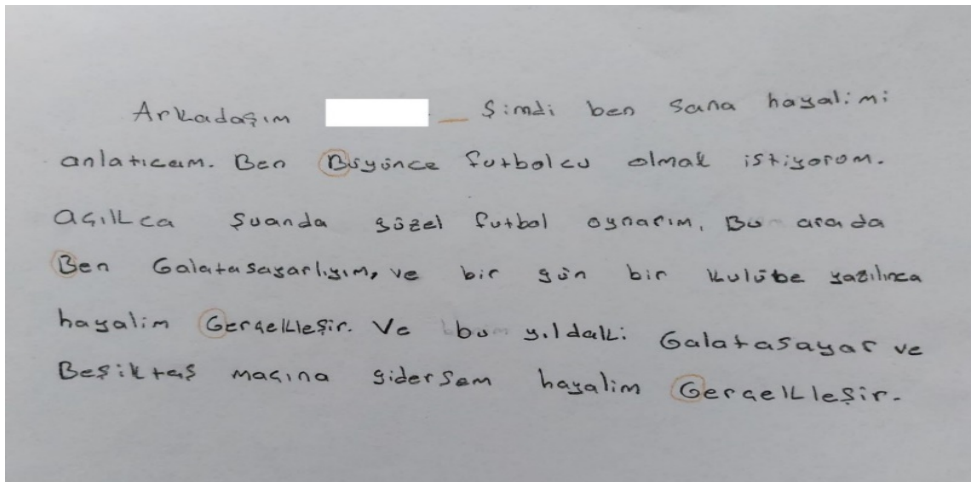 Arkadaşım _ Şimdi ben sana hayalimi
anlatıcam. Ben Büyünce futbolcu olmak istiyorum.
açıkca Şuanda güzel futbol oynarım, Bu arada
Ben Galatasayarlıyım, ve bir gün bir kulübe yazılınca
hayalim Gerçekleşir. Ve bu yıldaki Galatasayar ve
Beşiktaş maçına gidersem hayalim Gerçekleşir.